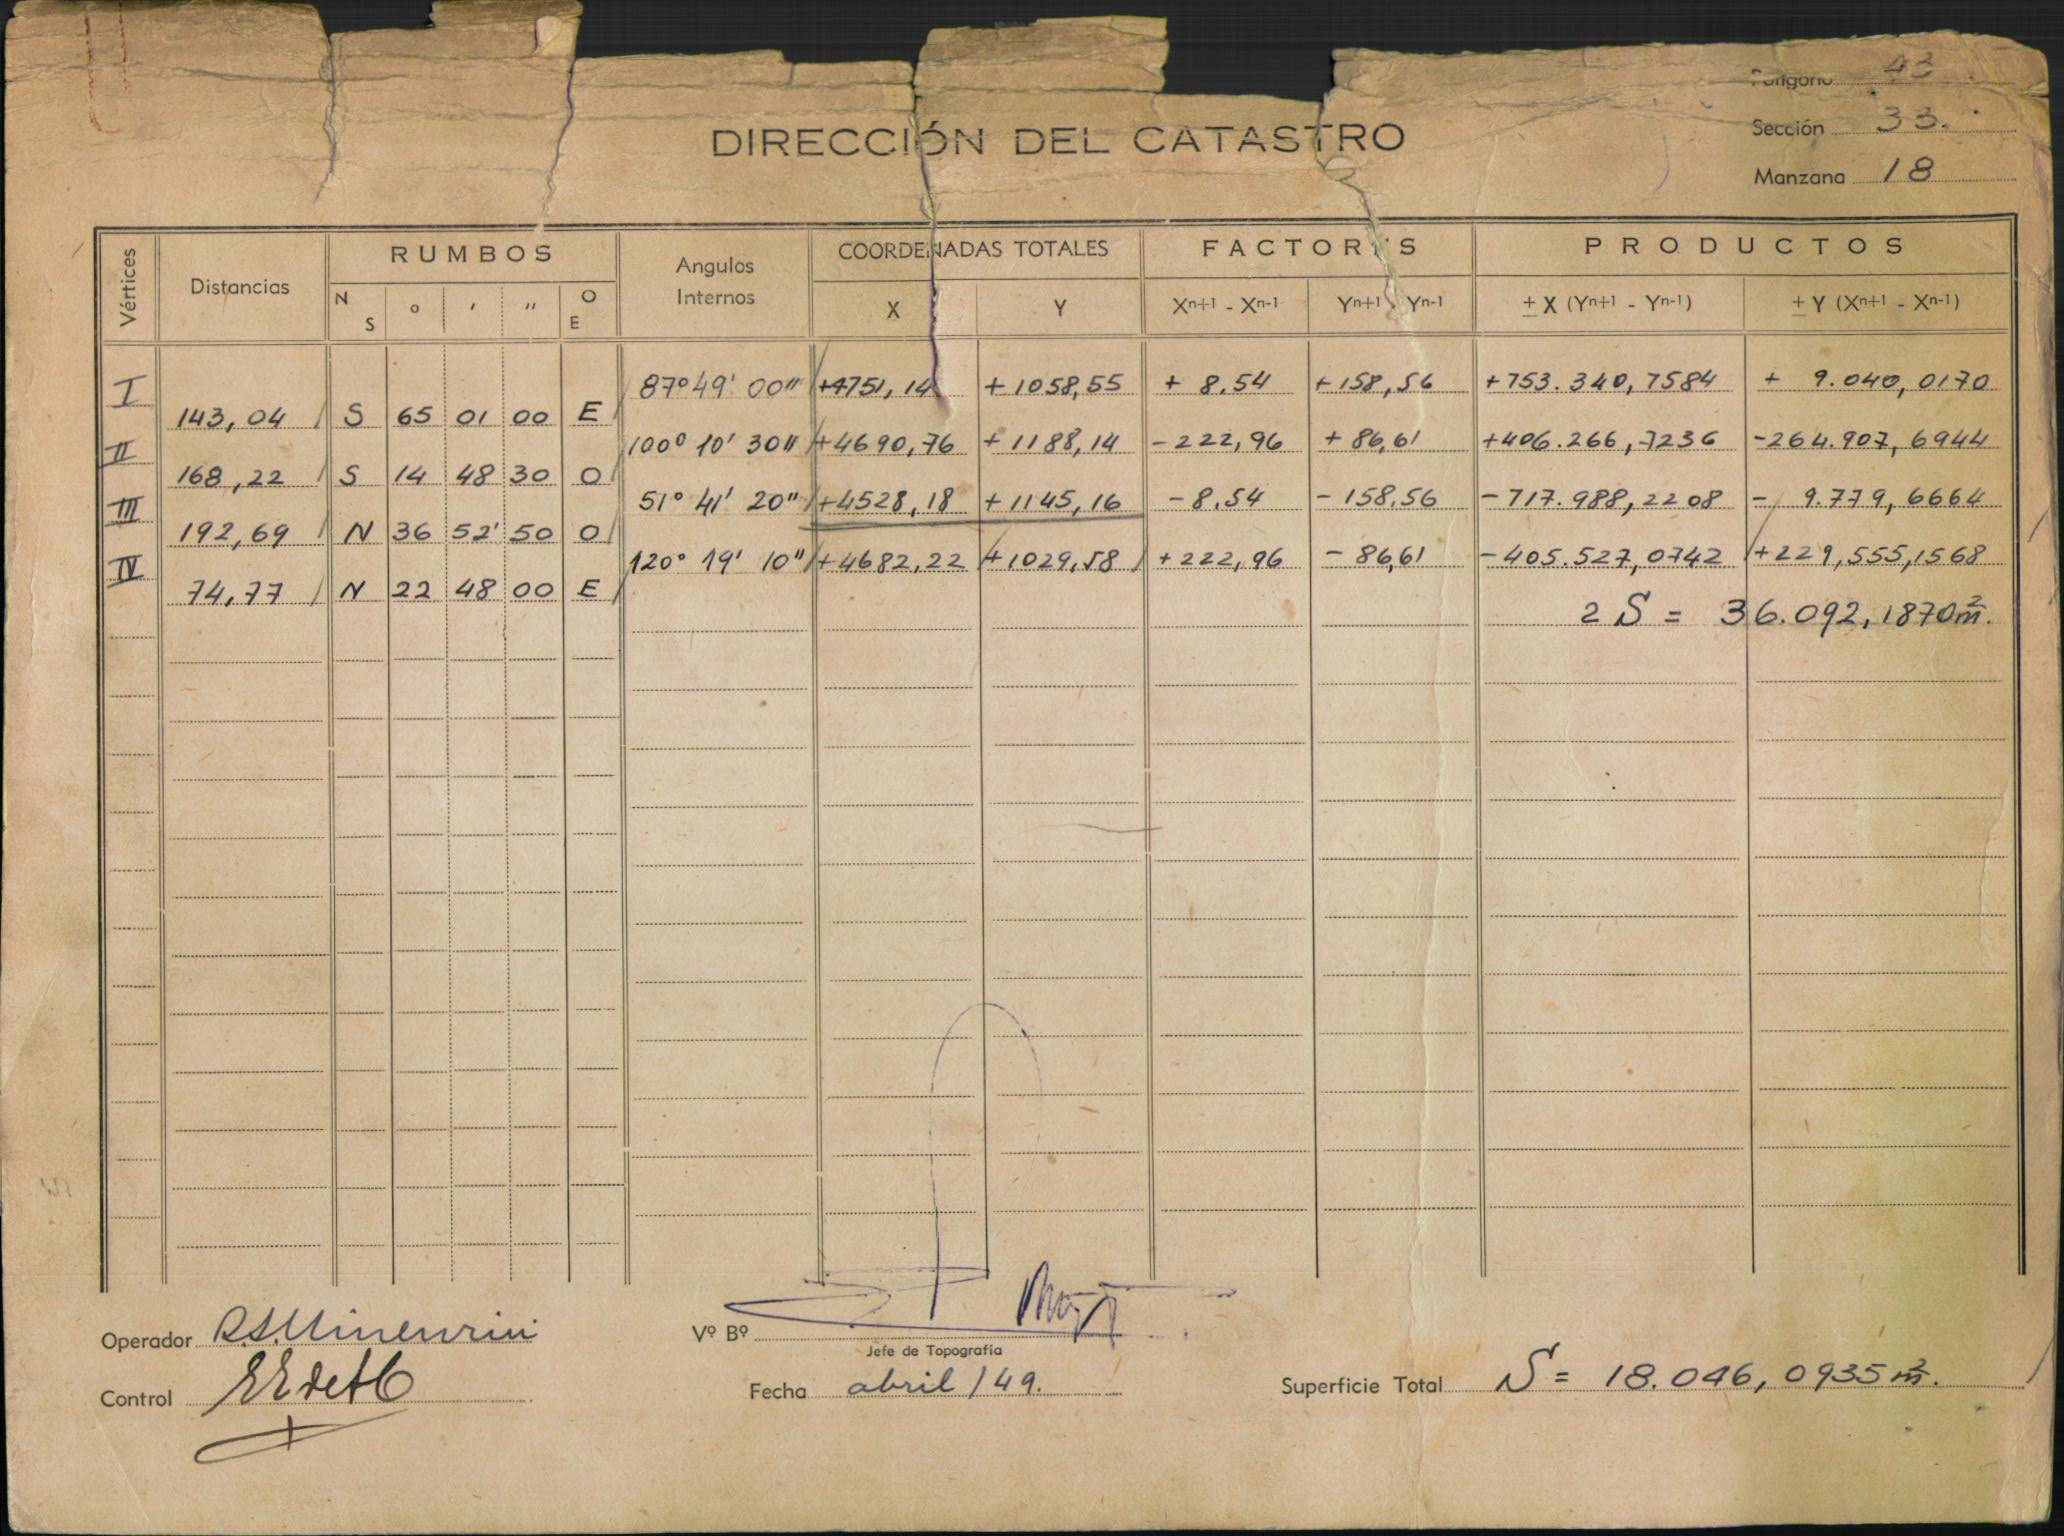 Polígono 43
DIRECCIÓN DEL CATASTRO
Sección 33.
Manzana 18
Vértices Distancias RUMBOS Angulos Internos COORDENADAS TOTALES FACTORES PRODUCTOS
N S ° ' " O E X Y Xn+1 - Xn-1 Yn+1 - Yn-1 ± X (Yn+1 - Yn-1) ± Y (Xn+1 - Xn-1)
I 87° 49' 00" +4751,14 +1058,55 + 8.54 +158,56 +753.340,7584 + 9.040,0170
143,04 S 65 01 00 E
II 100° 10' 30" +4690,76 +1188,14 -222,96 +86,61 +406.266,7236 -264.907,6944
168,22 S 14 48 30 O
III 51° 41' 20" +4528,18 +1145,16 -8.54 -158.56 -717.988,2208 - 9.779,6664
192,69 N 36 52' 50 O
IV 120° 19' 10" +4682,22 +1029,58 +222,96 -86,61 -405.527,0742 +229,555,1568
74,77 N 22 48 00 E
2 S = 36.092,1870 m².
Operador
Vº Bº
Jefe de Topografía
Control
Fecha abril/49.
Superficie Total S = 18.046,0935 m².